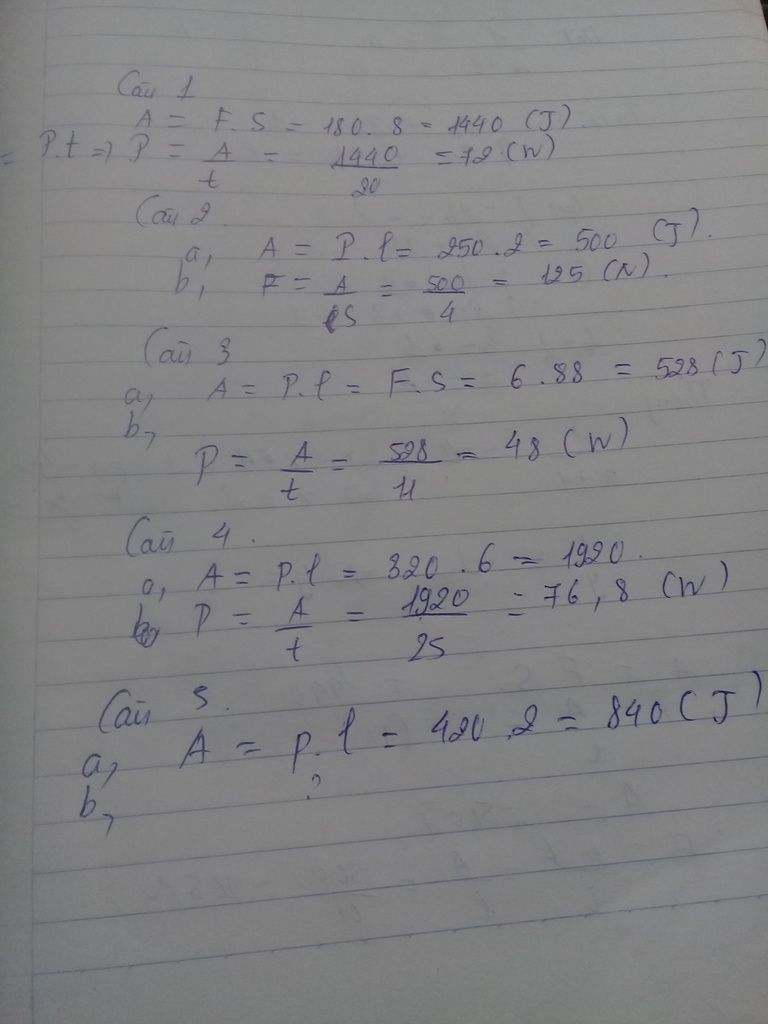 Câu 1
A = F.S = 180.8 = 1440 (J).
= P.t => P = A/t = 1440/20 = 72 (W)
Câu 2.
a, A = P.l = 250.2 = 500 (J).
b, F = A/S = 500/4 = 125 (N).
Câu 3
a, A = P.l = F.S = 6.88 = 528 (J)
b,
P = A/t = 528/11 = 48 (W)
Câu 4.
a, A = P.l = 320.6 = 1920.
b, P = A/t = 1920/25 = 76,8 (W)
Câu 5.
a, A = p.l = 420.2 = 840 (J)
b, ?